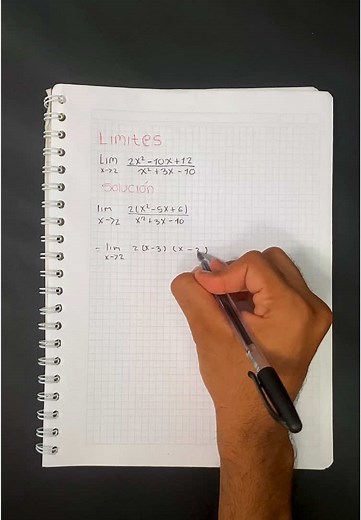 Limites
lim x->2 2x²-10x+12 / x²+3x-10
Solución
lim x->2 2(x²-5x+6) / x²+3x-10
= lim x->2 2(x-3)(x-2)